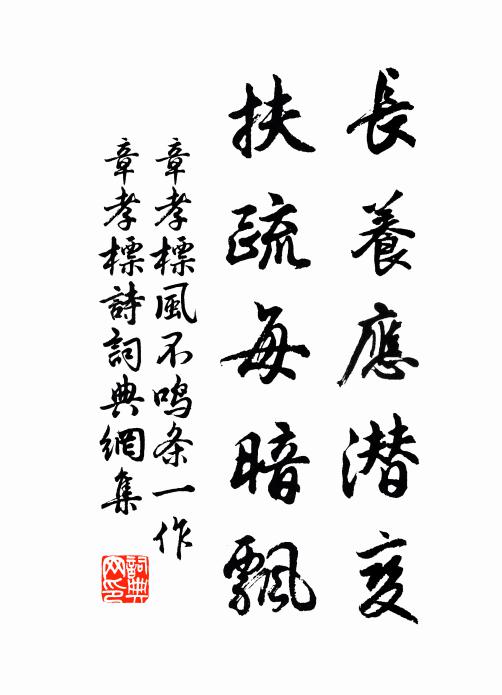 長養應潜变
扶疏每暗飄
章孝標風不鳴条一作
章孝標詩詞典網集
詞典网印